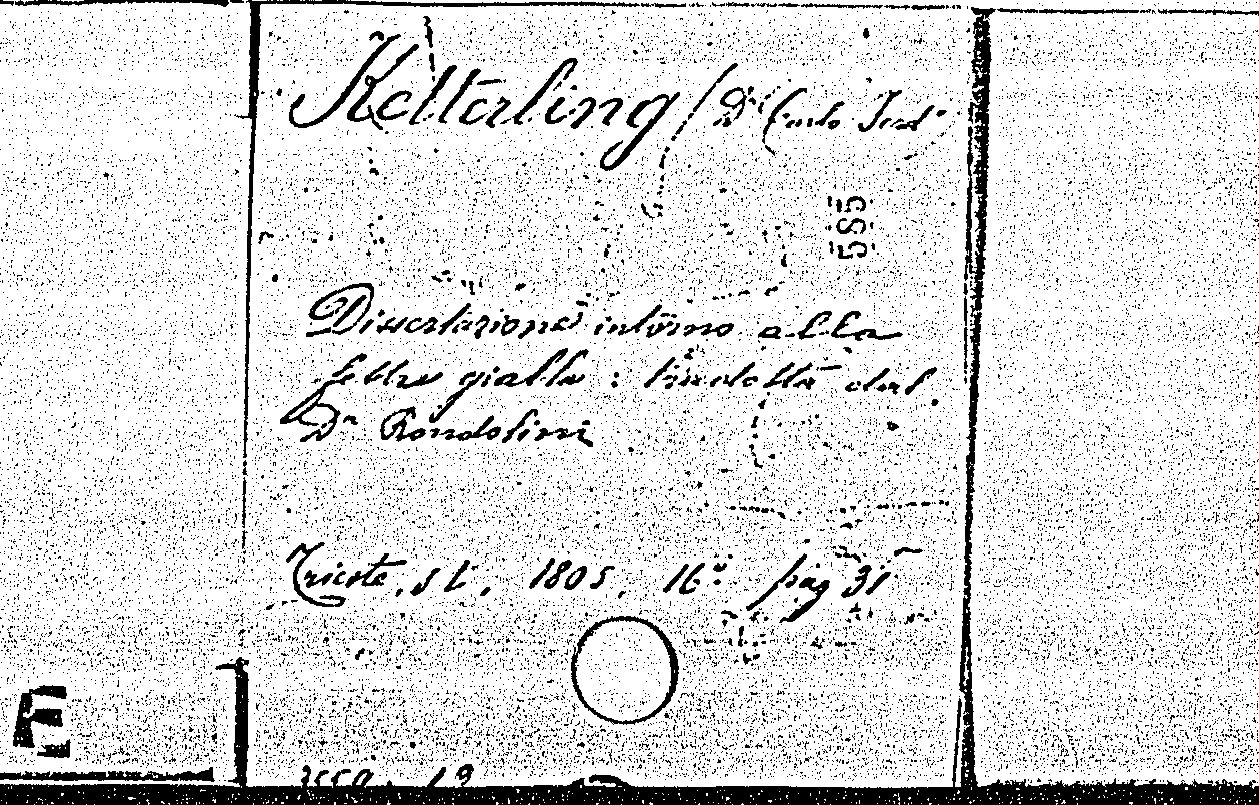 Ketterling / Dr Carlo Ferd.
585
Dissertazione intorno alla
febbre gialla : tradotta dal
Dr Rondolini
Trieste, s t. 1805, 16º pag 31
E